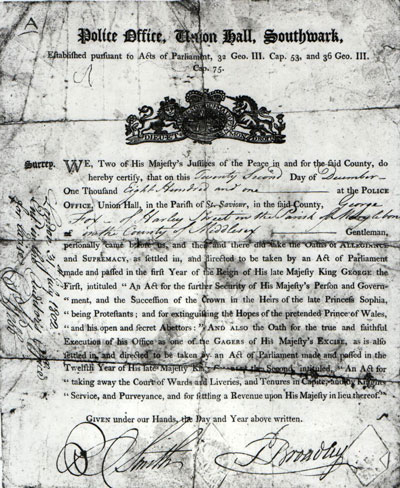 A
Police Office, Union Hall, Southwark,
Established pursuant to Acts of Parliament, 32 Geo. III. Cap. 53, and 36 Geo. III.
Cap. 75.
DIEU ET MON DROIT
Surrey. WE, Two of His Majesty's Justices of the Peace in and for the said County, do
hereby certify, that on this Twenty Second Day of December
One Thousand Eight Hundred and one at the POLICE
OFFICE, Union Hall, in the Parish of St. Saviour, in the said County, George
Fox Harley Street in the Parish
in the County of Middlesex Gentleman,
personally came before us, and then and there did take the OATHS of ALLEGIANCE
and SUPREMACY, as settled in, and directed to be taken by an Act of Parliament
made and passed in the first Year of the Reign of His late Majesty King GEORGE the
First, intituled "An Act for the further Security of His Majesty's Person and Govern-
"ment, and the Succession of the Crown in the Heirs of the late Princess Sophia,
"being Protestants; and for extinguishing the Hopes of the pretended Prince of Wales,
"and his open and secret Abettors:" AND also the OATH for the true and faithful
Execution of his Office as one of the GAGERS of HIS MAJESTY'S EXCISE, as is also
settled in, and directed to be taken by an Act of Parliament made and passed in the
Twelfth Year of His late Majesty King the Second, intituled, "An Act for
"taking away the Court of Wards and Liveries, and Tenures in Capite, and Knights
"Service, and Purveyance, and for settling a Revenue upon His Majesty in lieu thereof."
GIVEN under our Hands, the Day and Year above written.
Smith
Broadley
1802